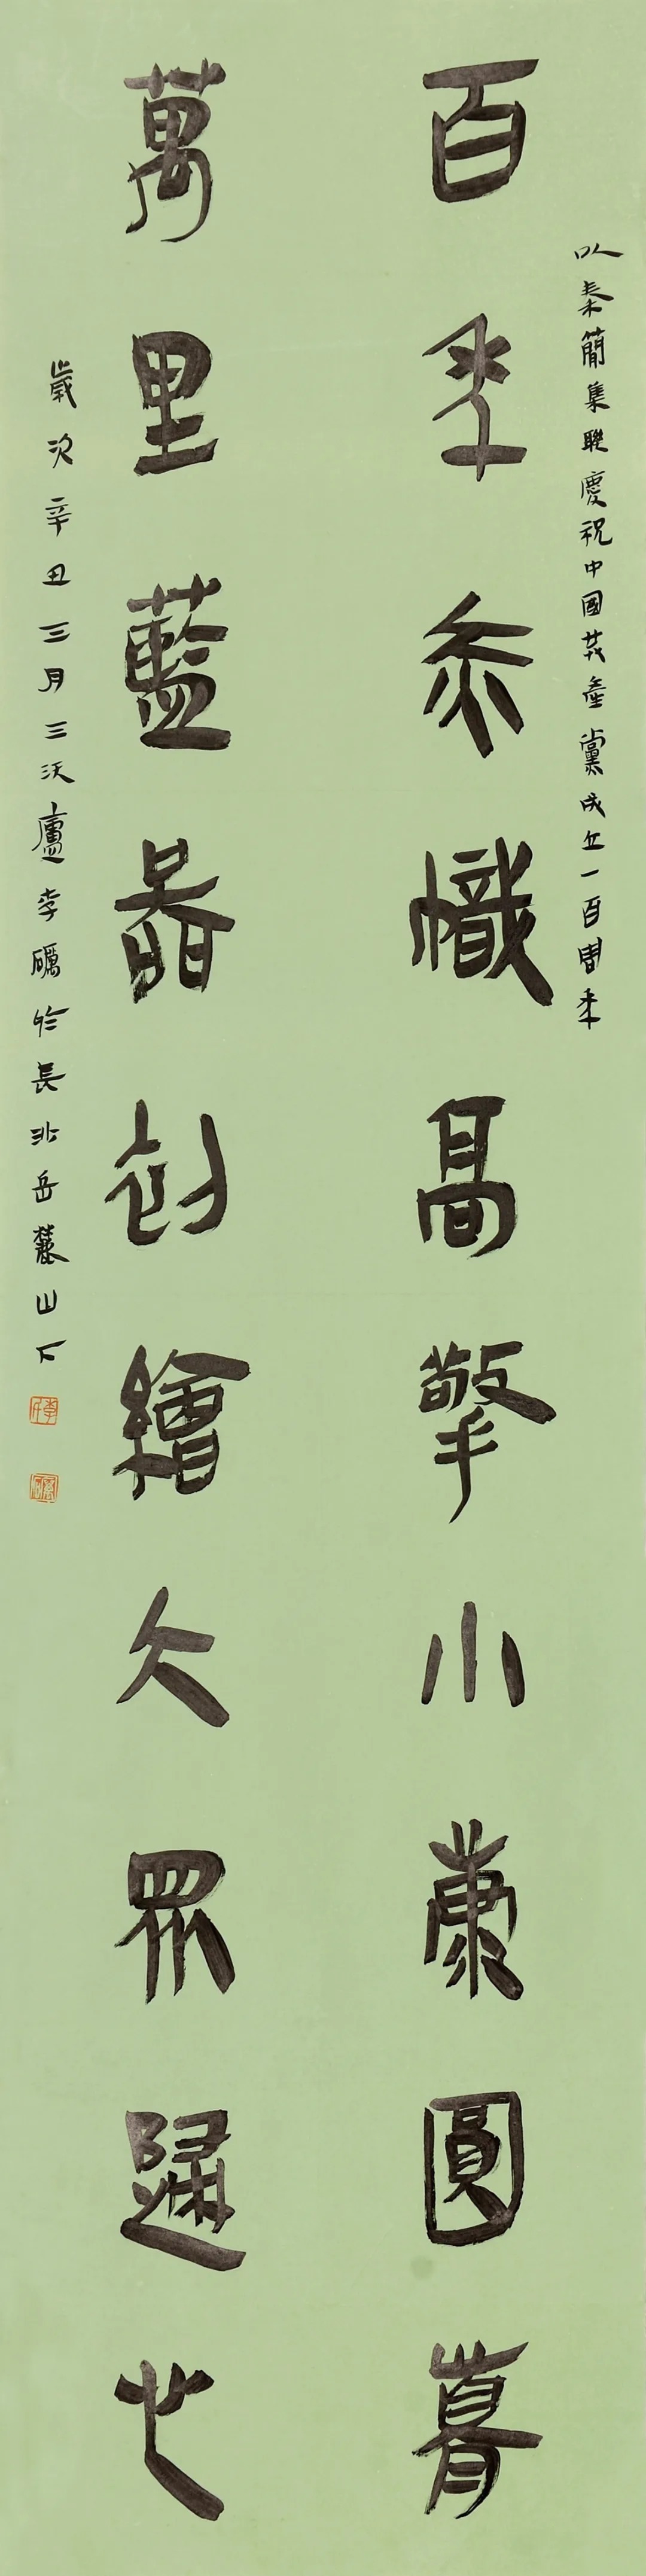 以秦簡集聯慶祝中國共產黨成立一百周年
百年赤幟高擎小康圓夢
萬里藍圖初繪人眾歸心
歲次辛丑三月三沃廬李礪於長沙岳麓山下